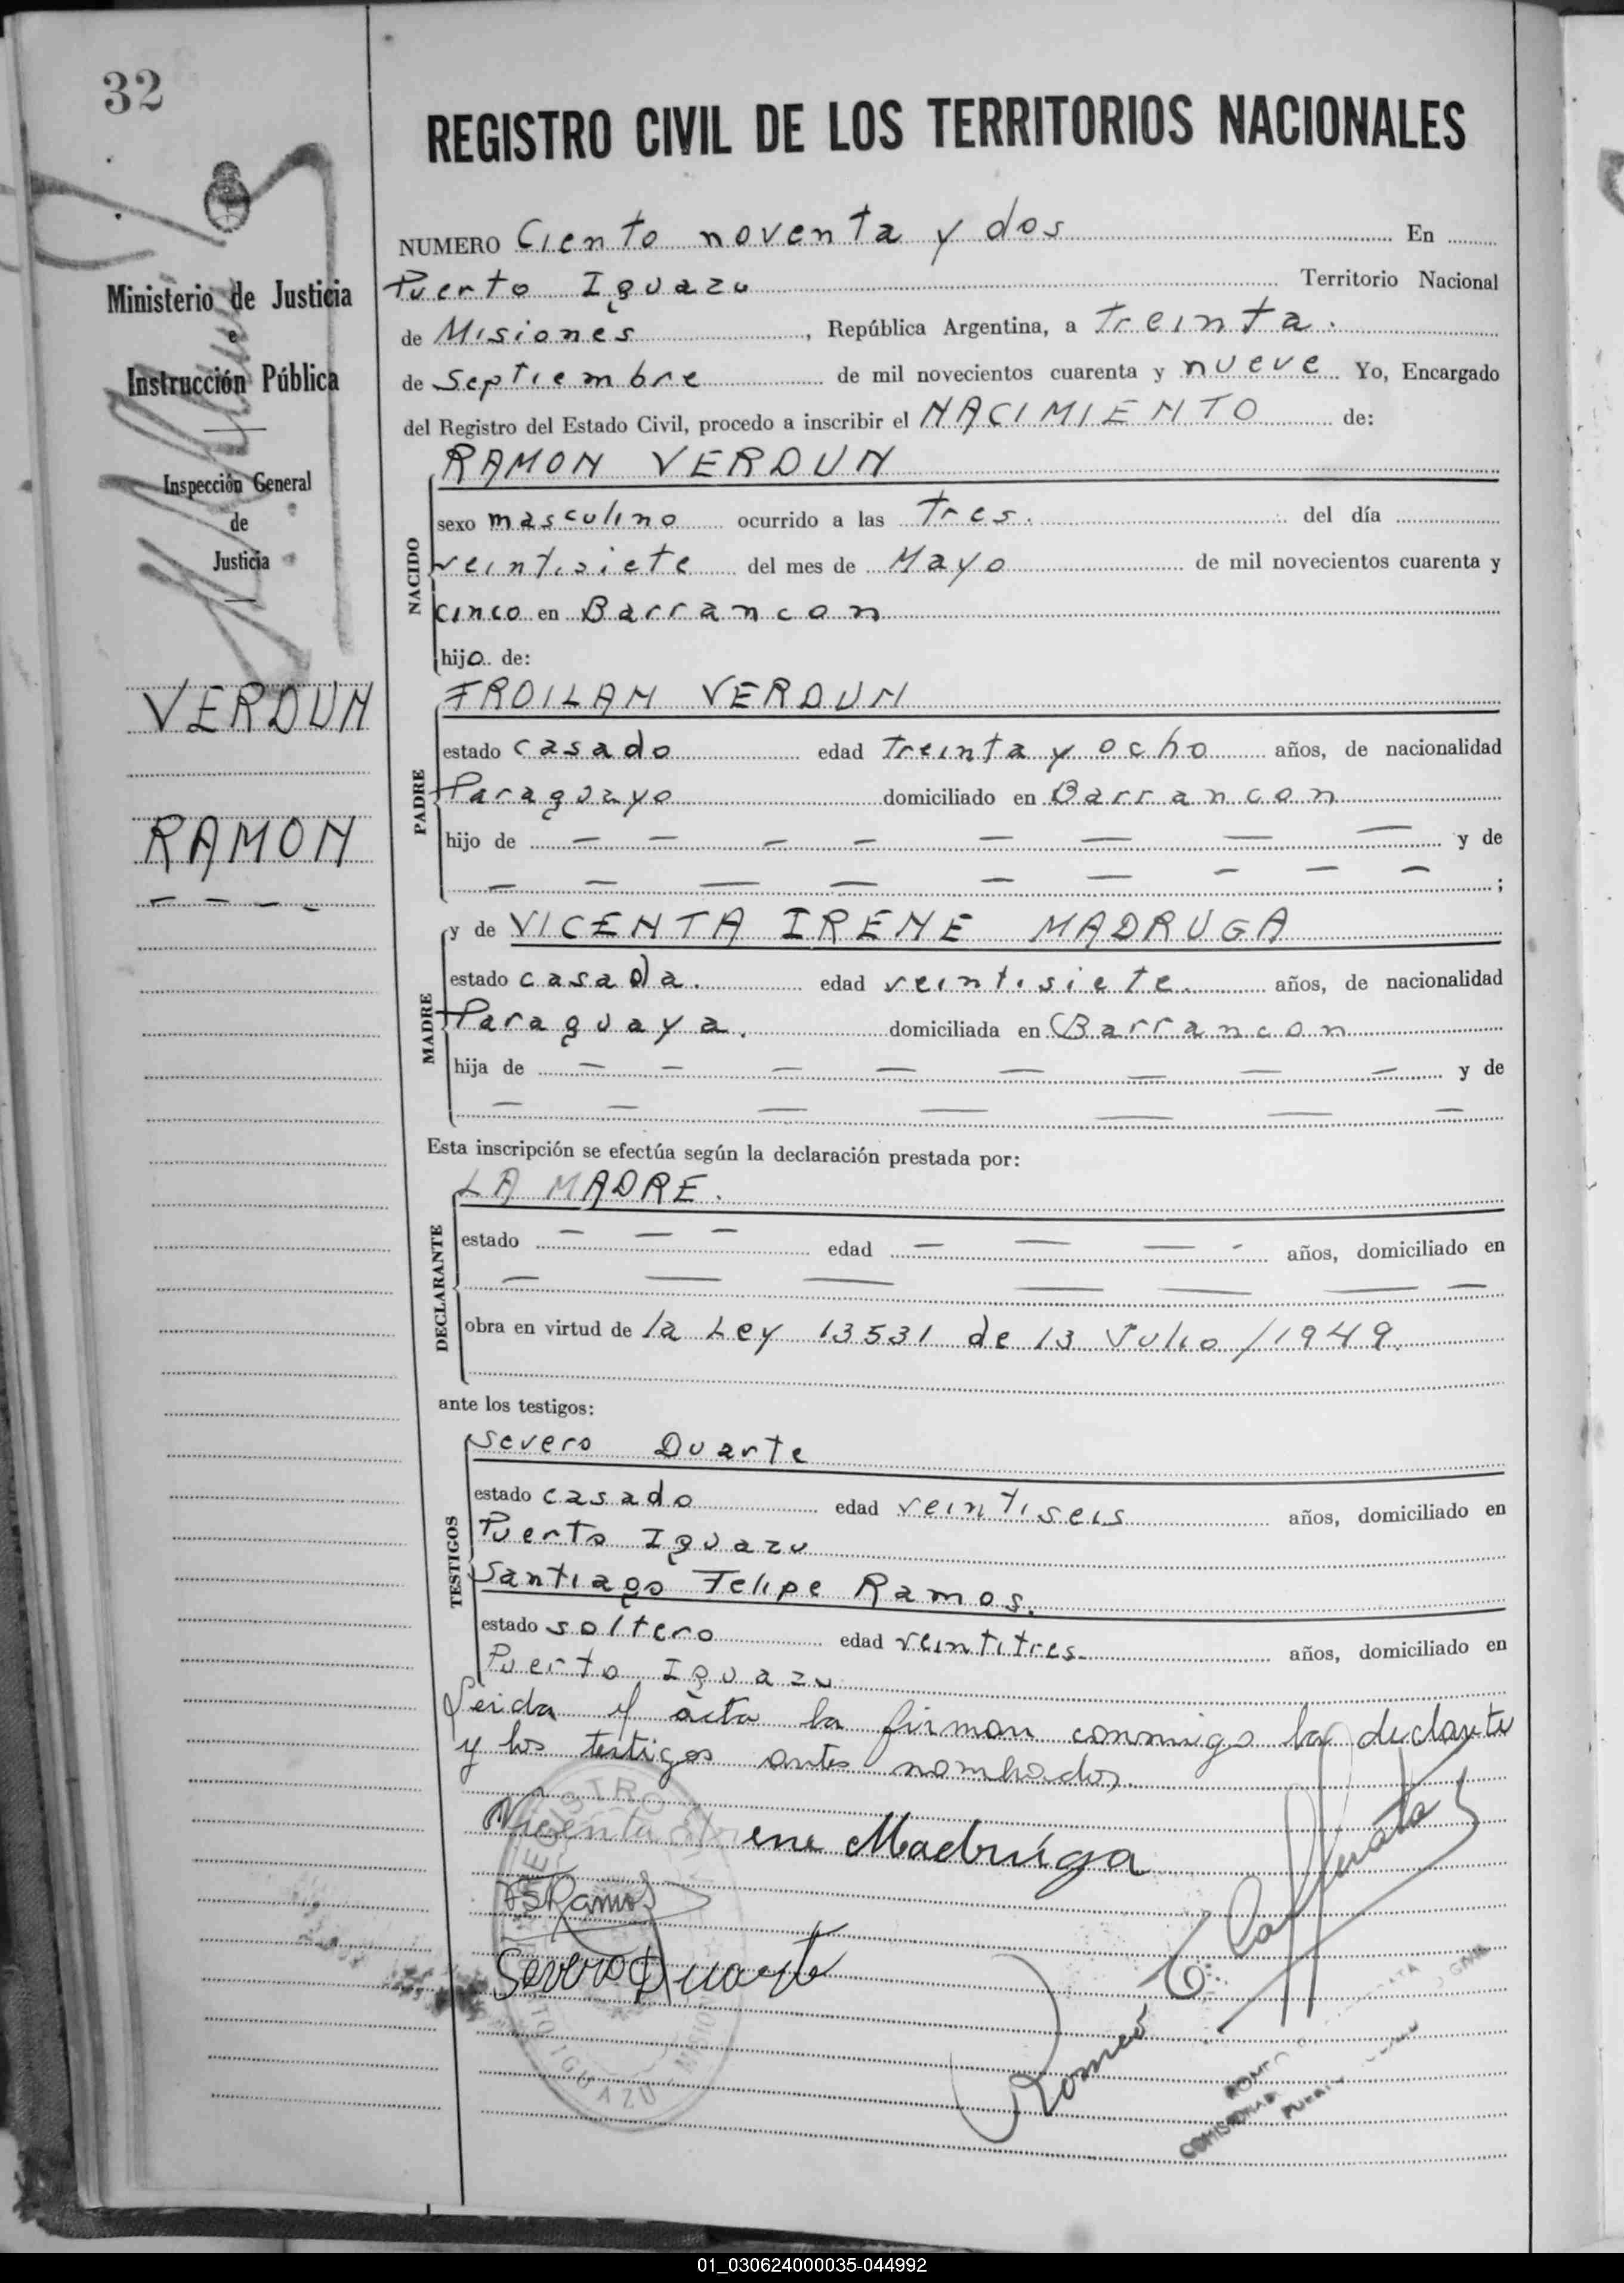 32
REGISTRO CIVIL DE LOS TERRITORIOS NACIONALES
Ministerio de Justicia
e
Instrucción Pública
Inspección General
de
Justicia
VERDUN
RAMON
NUMERO Ciento noventa y dos En
Puerto Iguazu Territorio Nacional
de Misiones, República Argentina, a Treinta.
de Septiembre de mil novecientos cuarenta y nueve Yo, Encargado
del Registro del Estado Civil, procedo a inscribir el NACIMIENTO de:
NACIDO
RAMON VERDUN
sexo masculino ocurrido a las Tres. del día
veintisiete del mes de Mayo de mil novecientos cuarenta y
cinco en Barrancon
hijo de:
PADRE
FROILAN VERDUN
estado casado edad Treinta y ocho años, de nacionalidad
Paraguayo domiciliado en Barrancon
hijo de — — — — — — — — y de
— — — — — — — — — ;
MADRE
y de VICENTA IRENE MADRUGA
estado casada. edad veintisiete. años, de nacionalidad
Paraguaya. domiciliada en Barrancon
hija de — — — — — — — — y de
— — — — — — —
Esta inscripción se efectúa según la declaración prestada por:
DECLARANTE
LA MADRE.
estado — — — edad — — — - años, domiciliado en
— — — — — — —
obra en virtud de la Ley 13531 de 13 Julio/1949.
ante los testigos:
TESTIGOS
Severo Duarte
estado casado edad veintiseis años, domiciliado en
Puerto Iguazu
Santiago Felipe Ramos.
estado soltero edad veintitres. años, domiciliado en
Puerto Iguazu
Leida el acta la firman conmigo la declarte
y los testigos antes nombrados.
Vicenta Irene Madruga
FSRamos
Severo Duarte
Romeo C.
REGISTRO
IGUAZU
01_030624000035-044992